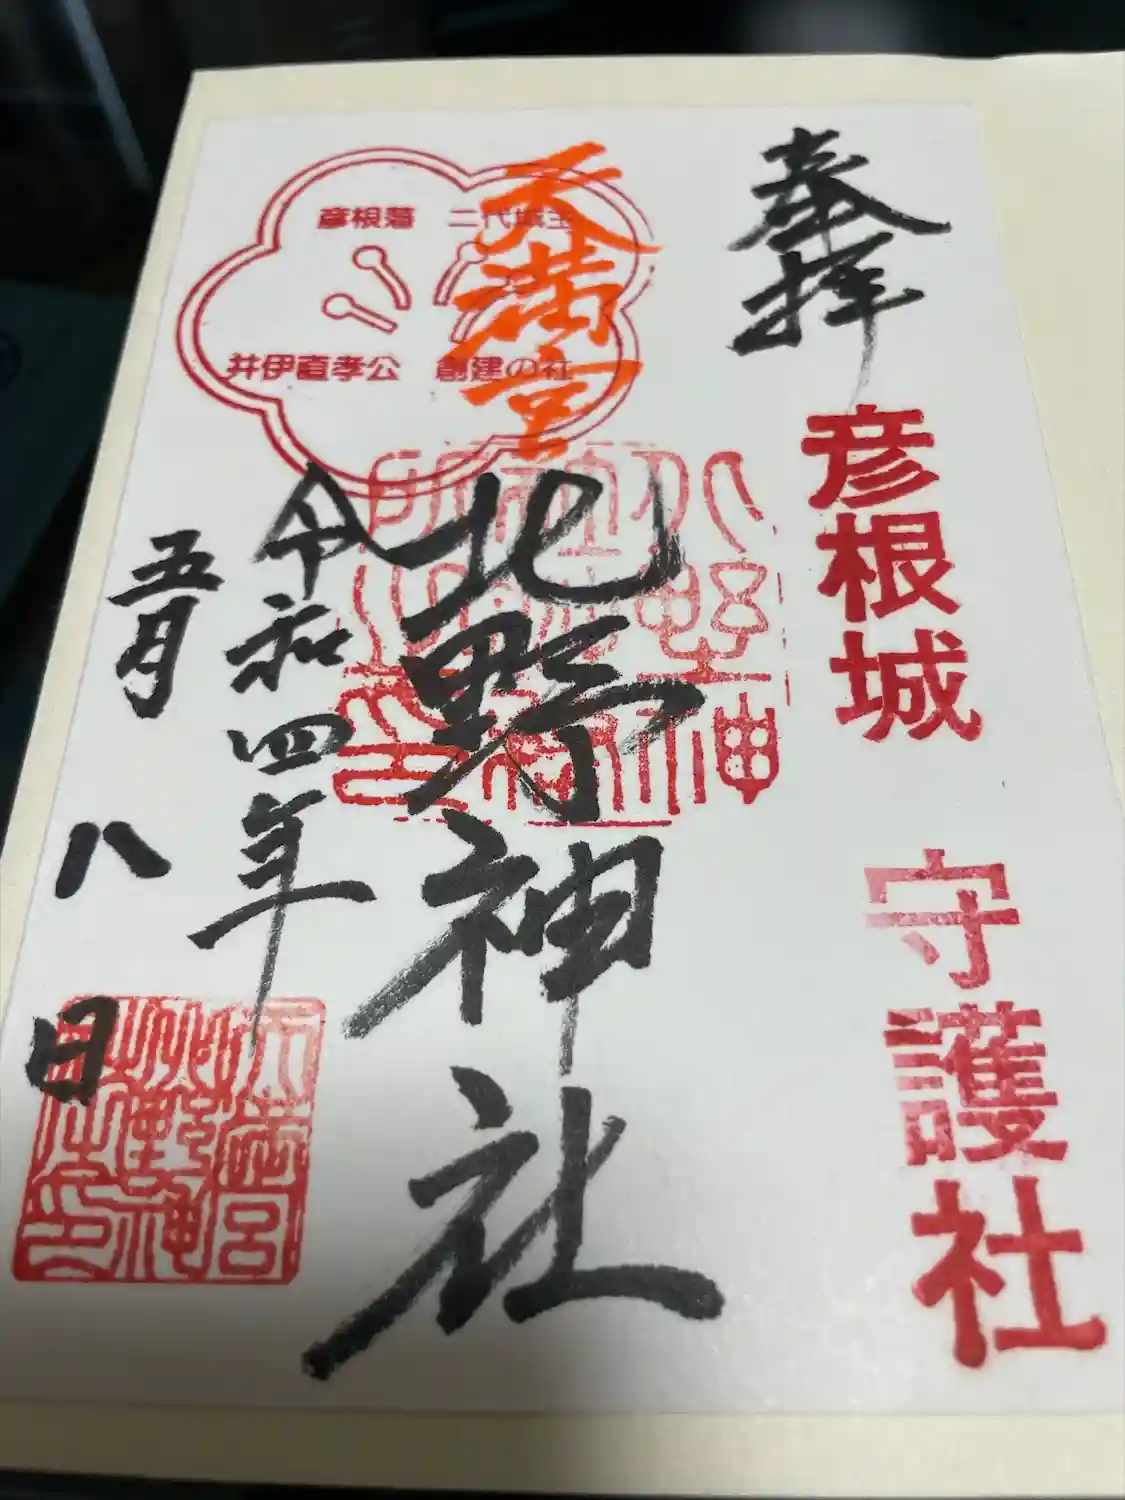 奉拝
彦根城 守護社
天満宮
北野神社
彦根藩 二代城主
井伊直孝公 創建の社
令和四年
五月八日